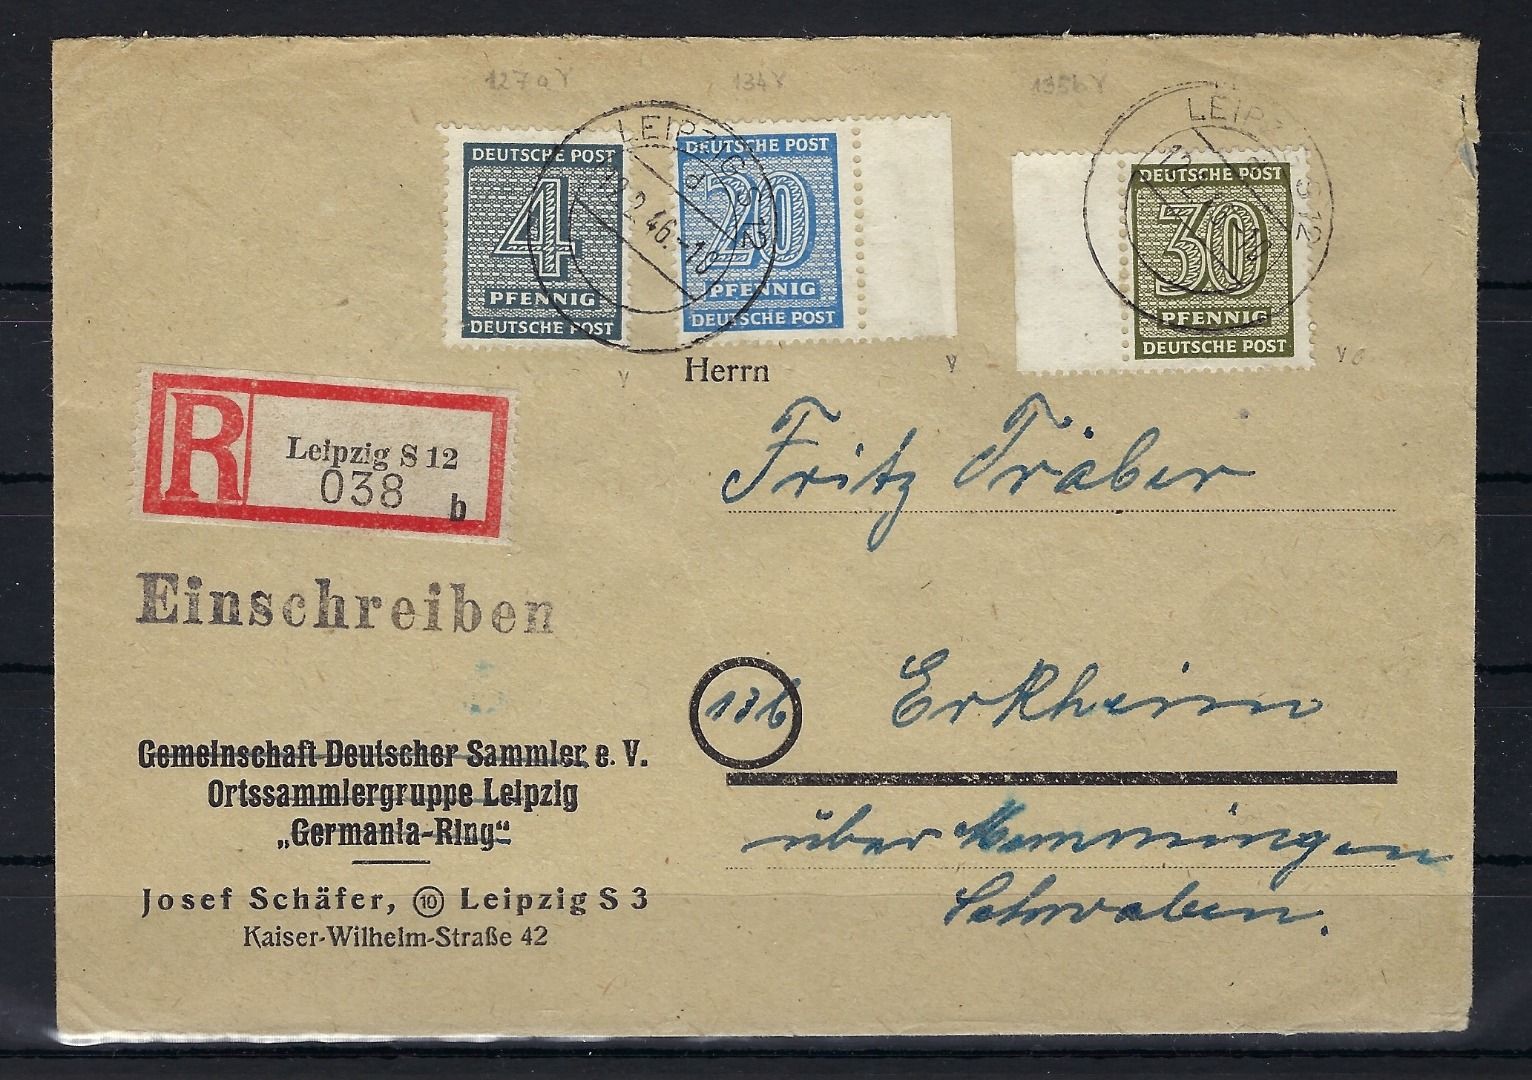 127a Y
134Y
135b Y
LEIPZIG S 12
d
12.2.46.-18
LEIPZIG S 12
d
DEUTSCHE POST
4
PFENNIG
DEUTSCHE POST
DEUTSCHE POST
20
PFENNIG
DEUTSCHE POST
DEUTSCHE POST
30
PFENNIG
DEUTSCHE POST
Y
Y
Herrn
R
Leipzig S 12
038
b
Fritz Träber
Einschreiben
13b
Erkheim
über Memmingen
Schwaben.
Gemeinschaft Deutscher Sammler, e. V.
Ortssammlergruppe Leipzig
„Germania-Ring“
Josef Schäfer, 10 Leipzig S 3
Kaiser-Wilhelm-Straße 42